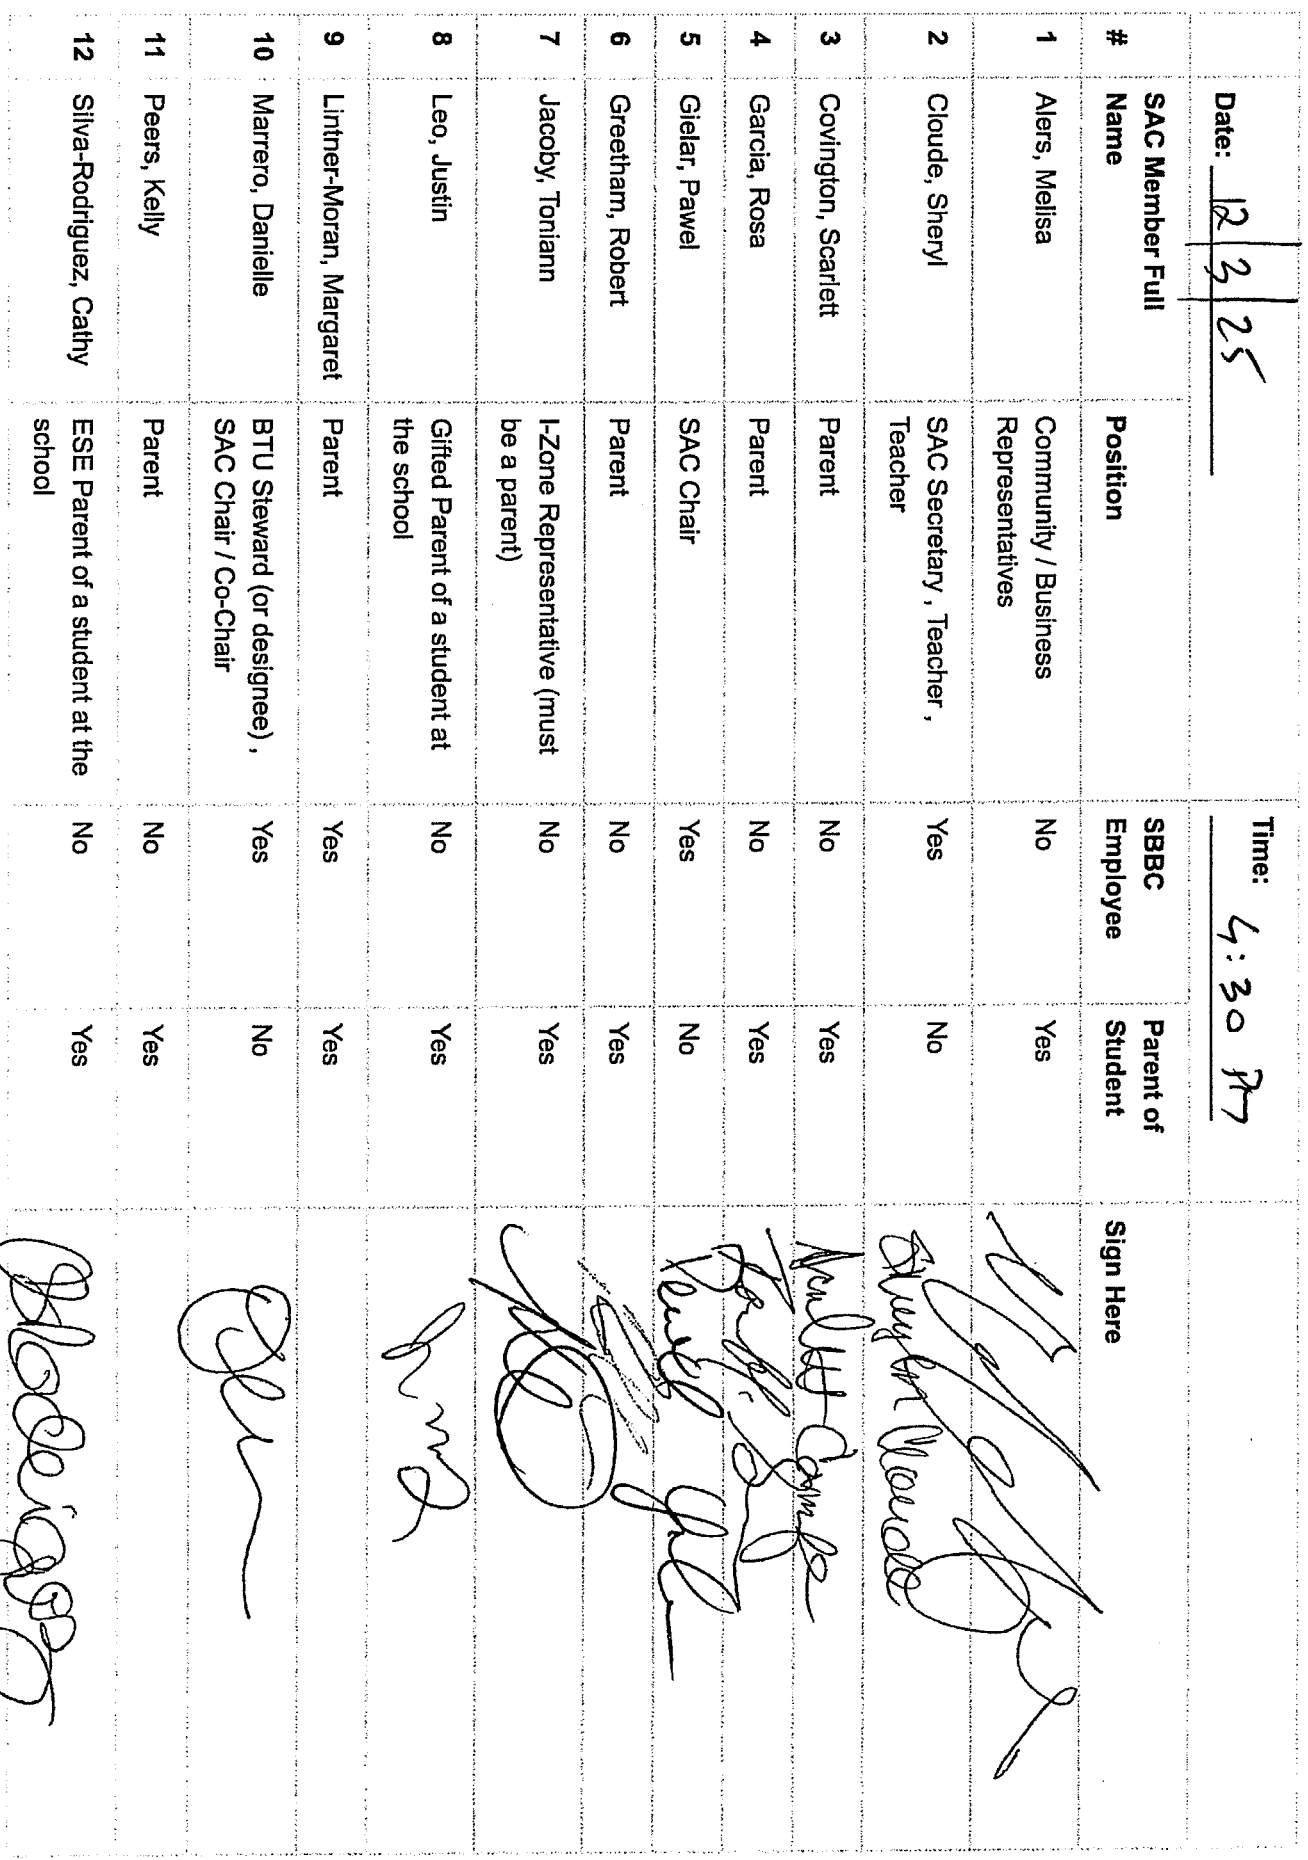 Date: 12/3/25 Time: 4:30 PM
# SAC Member Full Name Position SBBC Employee Parent of Student Sign Here
1 Alers, Melisa Community / Business Representatives No Yes
2 Cloude, Sheryl SAC Secretary , Teacher , Teacher Yes No
3 Covington, Scarlett Parent No Yes
4 Garcia, Rosa Parent No Yes
5 Gielar, Pawel SAC Chair Yes No
6 Greetham, Robert Parent No Yes
7 Jacoby, Toniann I-Zone Representative (must be a parent) No Yes
8 Leo, Justin Gifted Parent of a student at the school No Yes
9 Lintner-Moran, Margaret Parent Yes Yes
10 Marrero, Danielle BTU Steward (or designee) , SAC Chair / Co-Chair Yes No
11 Peers, Kelly Parent No Yes
12 Silva-Rodriguez, Cathy ESE Parent of a student at the school No Yes